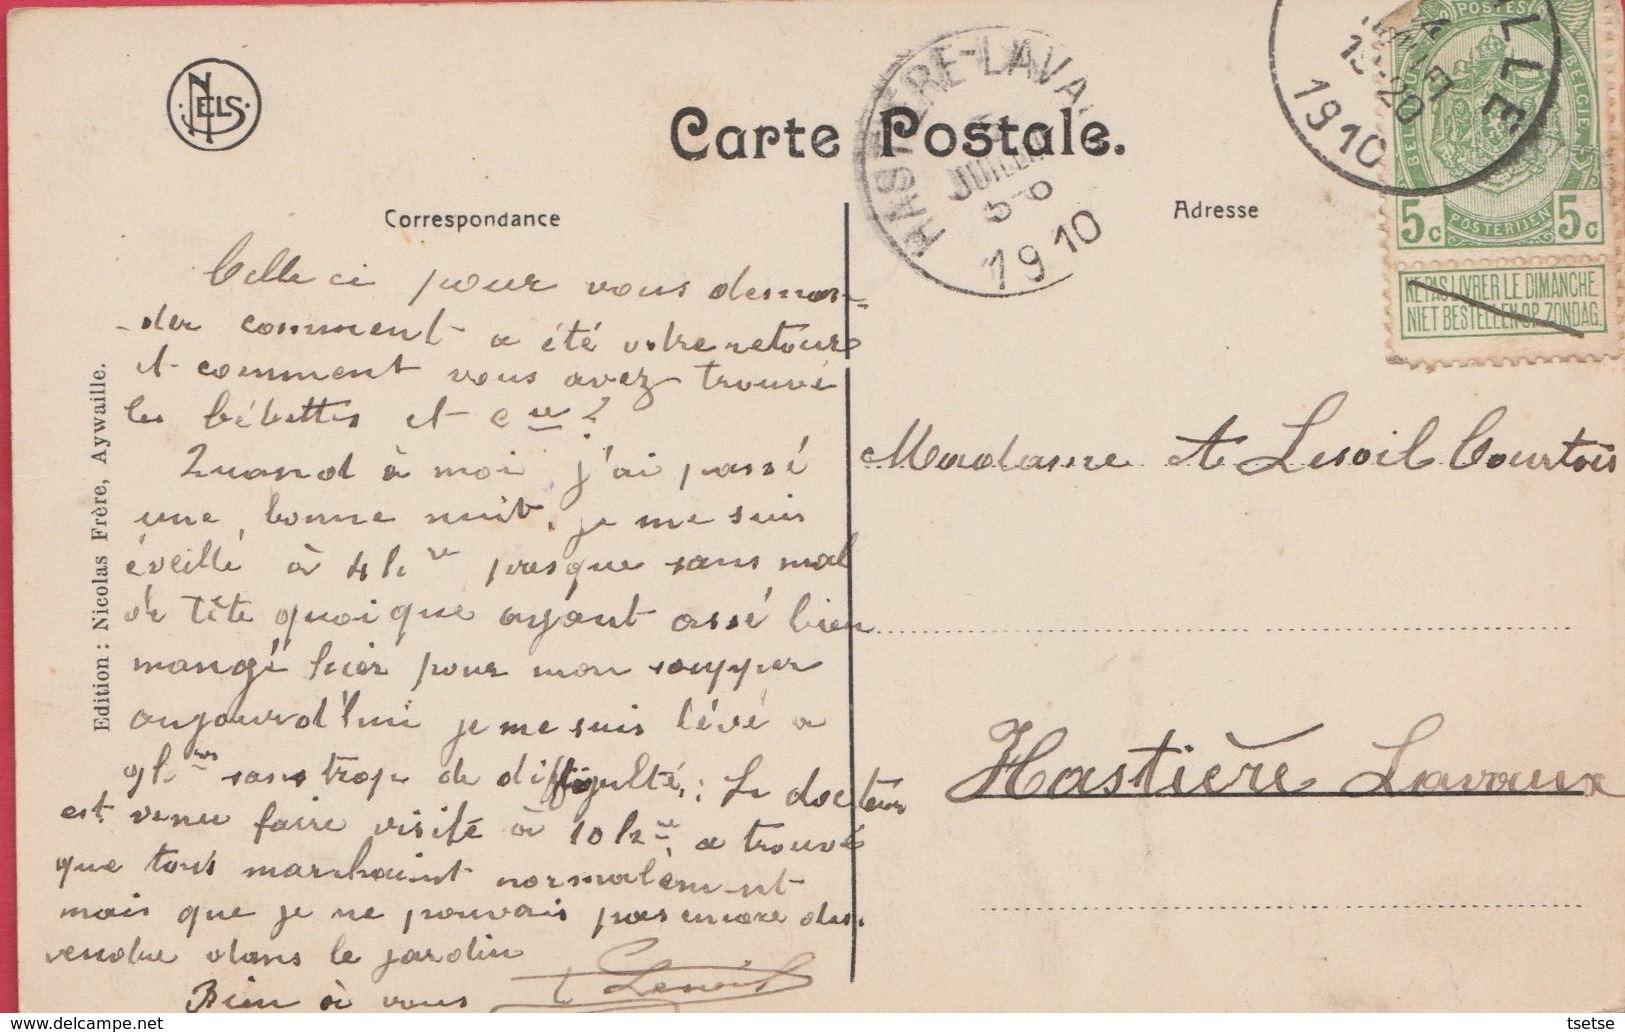 NELS
Carte Postale.
HASTIÈRE-LAVA
JUILLET
5-6
1910
LLE
1910
POSTES
BELGIQUE
BELGIE
5c POSTERIJEN 5c
NE PAS LIVRER LE DIMANCHE
NIET BESTELLEN OP ZONDAG
Correspondance
Adresse
Edition : Nicolas Frère, Aywaille.
Celle ci pour vous deman-
-der comment a été votre retour
et comment vous avez trouvé
les bébettes et
Quand à moi j'ai passé
une bonne nuit, je me suis
éveillé à 4 h re presque sans mal
de tête quoique ayant assé bien
mangé hier pour mon soupper
aujourd'hui je me suis lévé a
9 h res sans trop de difficulté, : Le docteur
est venu faire visite à 10 h re a trouvé
que tous marchaint normalément
mais que je ne pouvais pas encore des-
vendre dans le jardin
Bien à vous
Lesoil
Madame A Lesoil Courtois
Hastière Lavaux
tsetse